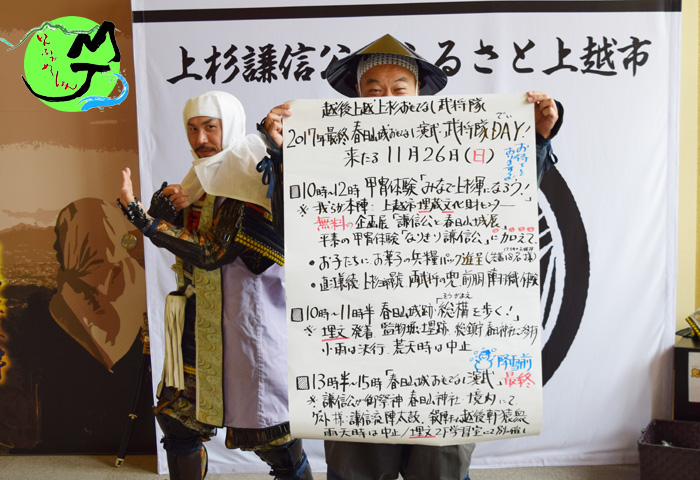 上杉謙信公 るさと上越市
越後上越上杉おもてなし武将隊
2017年最終 春日山城おもてなし演武 武将隊DAY!
でい
来たる11月26日(日)
お待ちしておりまする
10時〜12時 甲冑体験「みなで上杉軍になろう!」
※我らが本陣・上越市埋蔵文化財センター
無料の企画展「謙信公と春日山城展」
平泰の甲冑体験「なりきり謙信公」に加えて
・お子たちに、お菓子の兵糧パック進呈
・直江兼続、上杉景勝、両将の兜、前胴、陣羽織体験
そうがまえ
10時〜11時半 春日山城跡「総構を歩く!」
※埋文発着
小雨は決行、荒天時は中止
降雪前
13時半〜15時「春日山城おもてなし演武」最終
※謙信公が御祭神 春日山神社 境内にて
ゲスト様:謙信流陣太鼓、
雨天時は中止/埋文
MJ